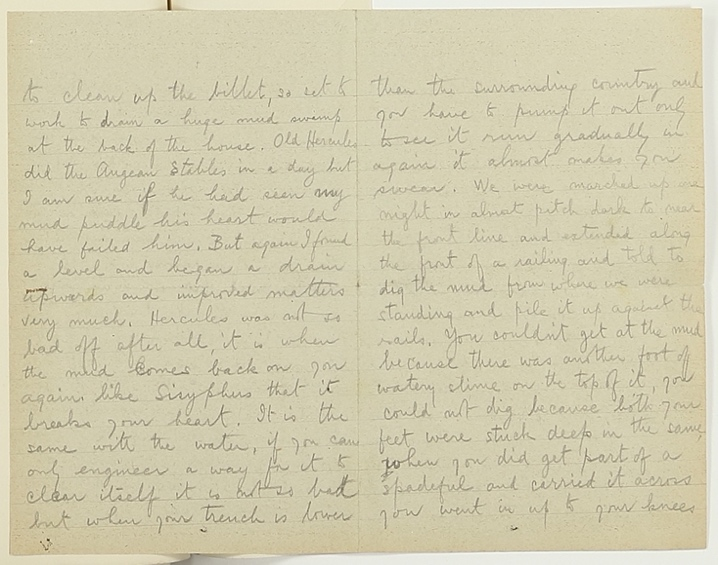 to clean up the billet, so set to
work to drain a huge mud swamp
at the back of the house. Old Hercules
did the Augean Stables in a day but
I am sure if he had seen my
mud puddle his heart would
have failed him. But again I found
a level and began a drain
upwards and improved matters
very much. Hercules was not so
bad off after all, it is when
the mud comes back on you
again like Sisyphus that it
breaks your heart. It is the
same with the water, if you can
only engineer a way for it to
clear itself it is not so bad
but when your trench is lower
than the surrounding country and
you have to pump it out only
to see it run gradually in
again it almost makes you
swear. We were marched up one
night in almost pitch dark to near
the front line and extended along
the front of a railing and told to
dig the mud from where we were
standing and pile it up against the
rails. You couldn't get at the mud
because there was another foot of
watery slime on the top of it, you
could not dig because both your
feet were stuck deep in the same,
when you did get part of a
spadeful and carried it across
you went in up to your knees